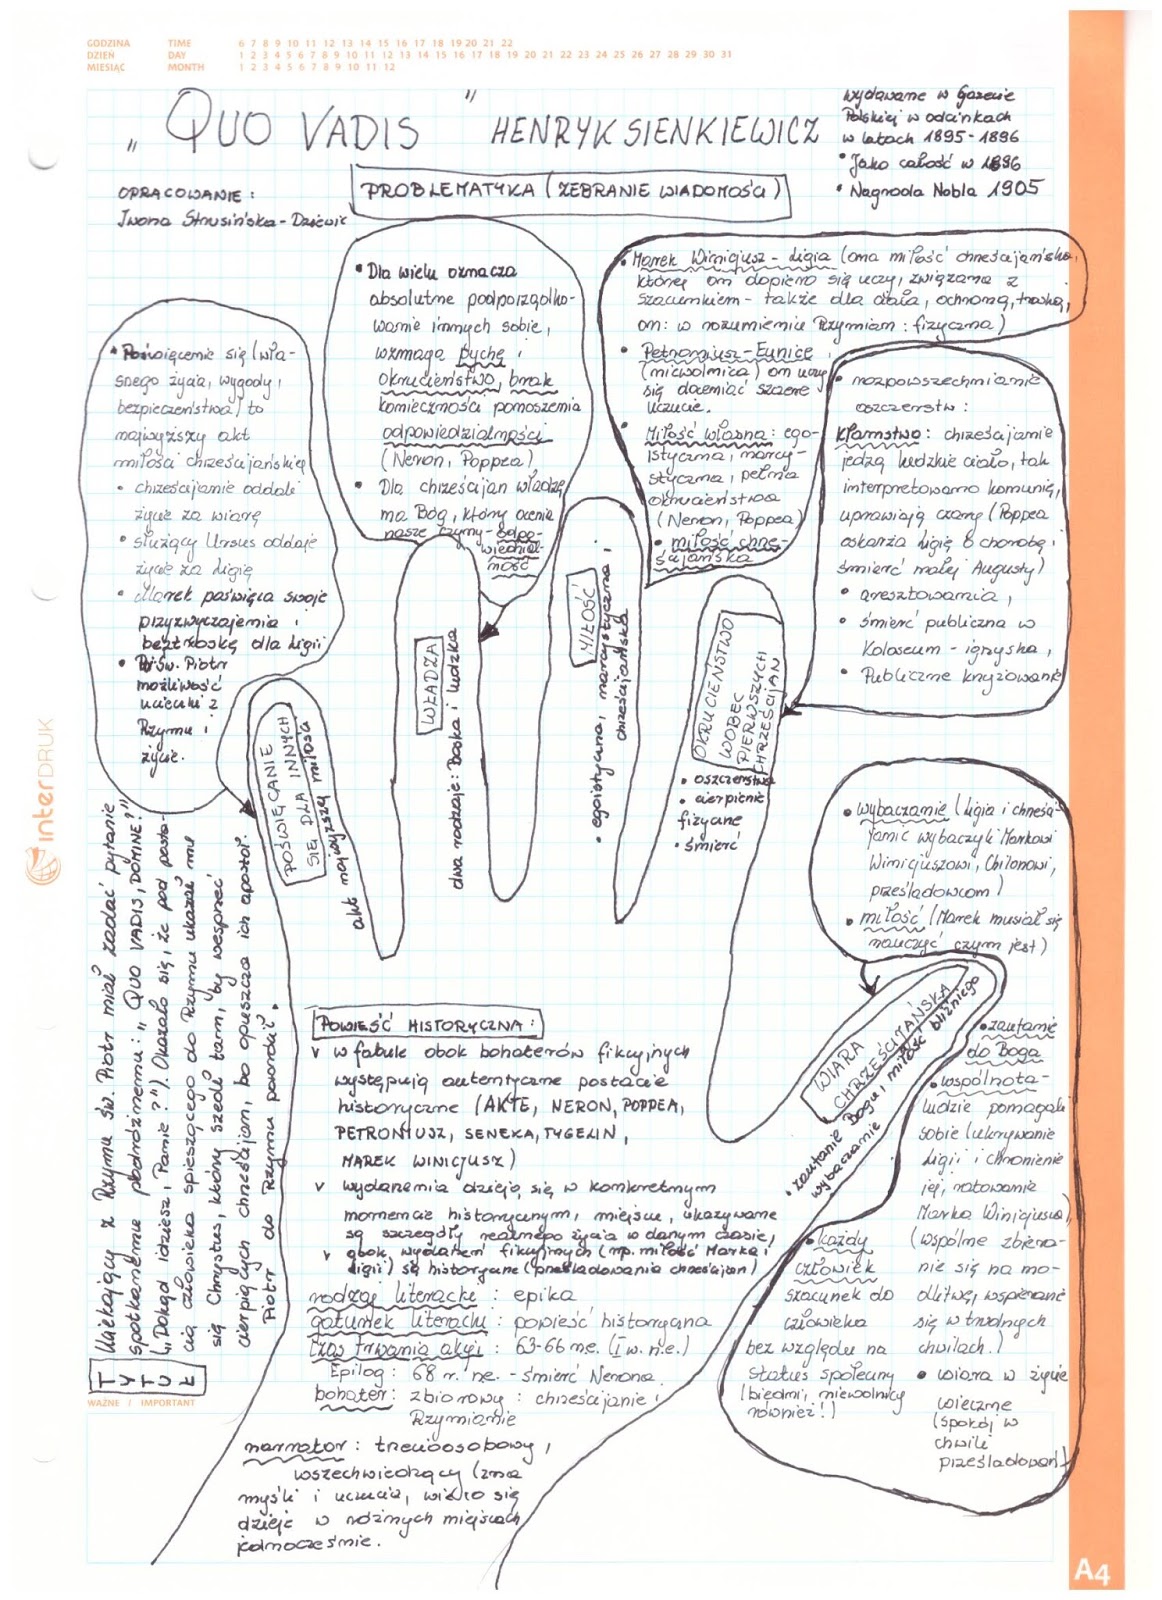 GODZINA TIME 6 7 8 9 10 11 12 13 14 15 16 17 18 19 20 21 22
DZIEŃ DAY 1 2 3 4 5 6 7 8 9 10 11 12 13 14 15 16 17 18 19 20 21 22 23 24 25 26 27 28 29 30 31
MIESIĄC MONTH 1 2 3 4 5 6 7 8 9 10 11 12
„QUO VADIS" HENRYK SIENKIEWICZ
wydawane w Gazecie
Polskiej w odcinkach
w latach 1895-1896
• Jako całość w 1896
• Nagroda Nobla 1905
OPRACOWANIE:
Iwona Strusińska-Dziewic
PROBLEMATYKA (ZEBRANIE WIADOMOŚCI)
• Poświęcenie się (wła-
snego życia, wygody,
bezpieczeństwa) to
najwyższy akt
miłości chrześcijańskiej
• chrześcijanie oddali
życie za wiarę
• służący Ursus oddaje
życie za Ligię
• Marek poświęca swoje
przyzwyczajenia i
beztroskę dla Ligii
• św. Piotr
możliwość
ucieczki z
Rzymu i
życie.
• Dla wielu oznacza
absolutne podporządko-
wanie innych sobie,
wzmaga pychę i
okrucieństwo, brak
konieczności ponoszenia
odpowiedzialności
(Neron, Poppea)
• Dla chrześcijan władzę
ma Bóg, który ocenia
nasze czyny - odpo-
wiedzial-
ność
• Marek Winicjusz - Ligia (ona miłość chrześcijańska,
której on dopiero się uczy, związana z
szacunkiem - także dla ciała, ochroną, troską,
on: w rozumieniu Rzymian: fizyczna)
• Petroniusz - Eunice
(niewolnica) on uczy
się doceniać szczere
uczucie.
• Miłość własna: ego-
istyczna, narcy-
styczna, pełna
okrucieństwa
(Neron, Poppea)
• miłość chrze-
ścijańska
• rozpowszechnianie
oszczerstw:
kłamstwo: chrześcijanie
jedzą ludzkie ciało, tak
interpretowano komunię,
uprawiają czary (Poppea
oskarża Ligię o chorobę i
śmierć małej Augusty)
• aresztowania,
• śmierć publiczna w
Koloseum - igrzyska,
• Publiczne krzyżowanie
POŚWIĘCANIE
SIĘ DLA INNYCH
akt najwyższej miłości
WŁADZA
dwa rodzaje: Boska i ludzka
MIŁOŚĆ
• egoistyczna, narcystyczna i
chrześcijańska
OKRUCIEŃSTWO
WOBEC
PIERWSZYCH
CHRZEŚCIJAN
• oszczerstwa
• cierpienie
fizyczne
• śmierć
• wybaczanie (Ligia i chrześci-
janie wybaczyli Markowi
Winicjuszowi, Chilonowi,
prześladowcom)
• miłość (Marek musiał się
nauczyć czym jest)
WIARA
CHRZEŚCIJAŃSKA
• zaufanie Bogu, i miłość bliźniego
wybaczanie
• zaufanie
do Boga
• wspólnota-
ludzie pomagali
sobie (ukrywanie
Ligii i chronienie
jej, ratowanie
Marka Winicjusza)
(wspólne zbiera-
nie się na mo-
dlitwę, wspieranie
się w trudnych
chwilach.)
• wiara w życie
wieczne
(spokój w
chwili
prześladowań)
• każdy
człowiek
szacunek do
człowieka
bez względu na
status społeczny
(biedni, niewolnicy
również!)
TYTUŁ
Uciekający z Rzymu św. Piotr miał zadać pytanie
spotkanemu podróżnemu: „QUO VADIS, DOMINE?"
(„Dokąd idziesz, Panie?"). Okazało się, że pod posta-
cią człowieka spieszącego do Rzymu ukazał mu
się Chrystus, który szedł tam, by wesprzeć
cierpiących chrześcijan, bo opuszcza ich apostoł.
Piotr do Rzymu powrócił.
POWIEŚĆ HISTORYCZNA:
v w fabule obok bohaterów fikcyjnych
występują autentyczne postacie
historyczne (AKTE, NERON, POPPEA,
PETRONIUSZ, SENEKA, TYGELIN,
MAREK WINICJUSZ)
v wydarzenia dzieją się w konkretnym
momencie historycznym, miejscu, ukazywane
są szczegóły realnego życia w danym czasie,
v obok wydarzeń fikcyjnych (np. miłość Marka i
Ligii) są historyczne (prześladowania chrześcijan)
rodzaj literacki: epika
gatunek literacki: powieść historyczna
Czas trwania akcji: 63-66 n.e. (I w. n.e.)
Epilog: 68 r. n.e. - śmierć Nerona
bohater: zbiorowy: chrześcijanie i
Rzymianie
narrator: trzecioosobowy,
wszechwiedzący (zna
myśli i uczucia, wie co się
dzieje w różnych miejscach
jednocześnie.
WAŻNE / IMPORTANT
interDRUK
A4